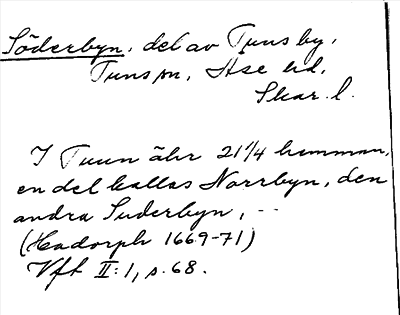 Söderbyn, del av Tuns by,
Tuns sn, Åse hd,
Skar. l.
I Tuun ähr 21 1/4 hemman,
en del kallas Norrbyn, den
andra Suderbyn, --
(Hadorph 1669-71)
Vft II:1, s. 68.